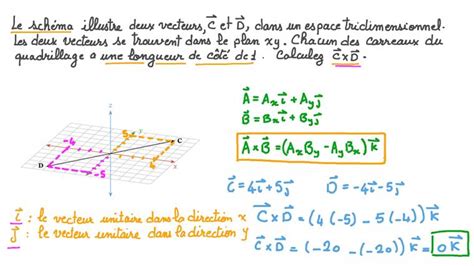 Le schéma illustre deux vecteurs, C⃗ et D⃗, dans un espace tridimensionnel.
Les deux vecteurs se trouvent dans le plan xy. Chacun des carreaux du
quadrillage a une longueur de côté de 1. Calculez C⃗×D⃗.
z
5
-4
4
C
D
-5
A⃗ = Aₓi⃗ + Aᵧj⃗
B⃗ = Bₓi⃗ + Bᵧj⃗
A⃗×B⃗ = (AₓBᵧ - AᵧBₓ)k⃗
C⃗ = 4i⃗ + 5j⃗ D⃗ = -4i⃗ - 5j⃗
i⃗ : le vecteur unitaire dans la direction x
j⃗ : le vecteur unitaire dans la direction y
C⃗×D⃗ = (4(-5) - 5(-4))k⃗
C⃗×D⃗ = (-20 - (-20))k⃗ = 0k⃗